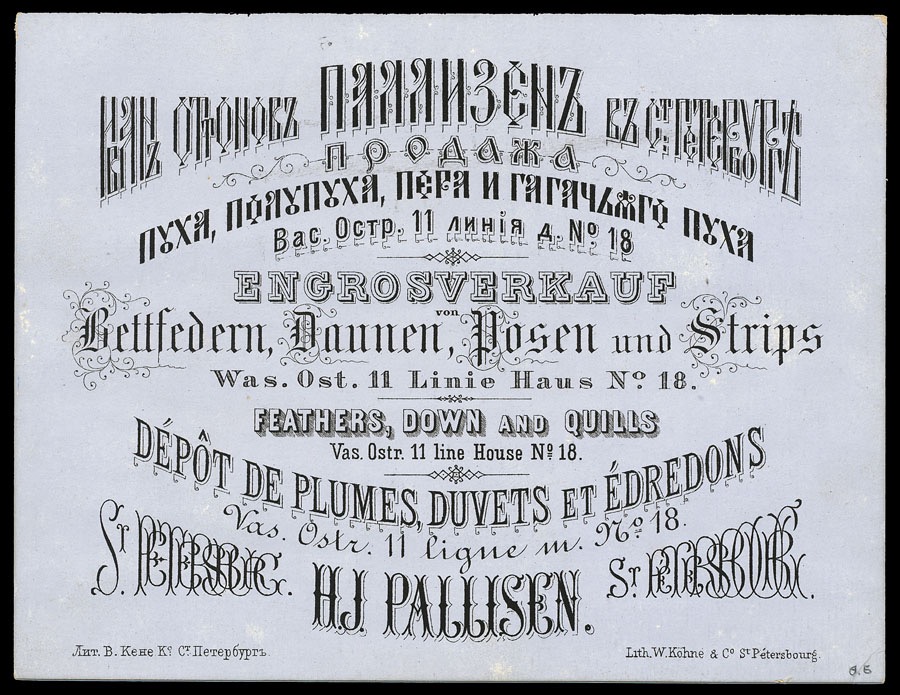 ПАЛЛИЗЕНЪ ВЪ Ст. ПЕТЕРБУРГѢ
ПРОДАЖА
ПУХА, ПОЛУПУХА, ПЕРА И ГАГАЧЬЯГО ПУХА
Вас. Остр. 11 линія д. № 18
ENGROSVERKAUF
von
Bettfedern, Daunen, Posen und Strips
Was. Ost. 11 Linie Haus No 18.
FEATHERS, DOWN AND QUILLS
Vas. Ostr. 11 line House No 18.
DÉPÔT DE PLUMES, DUVETS ET ÉDREDONS
Vas. Ostr. 11 ligne m. No 18.
St PETERSBURG.
H.J. PALLISEN.
St PETERSBOURG.
Лит. В. Кене Ко Ст Петербургъ.
Lith. W. Köhne & Co St Pétersbourg.